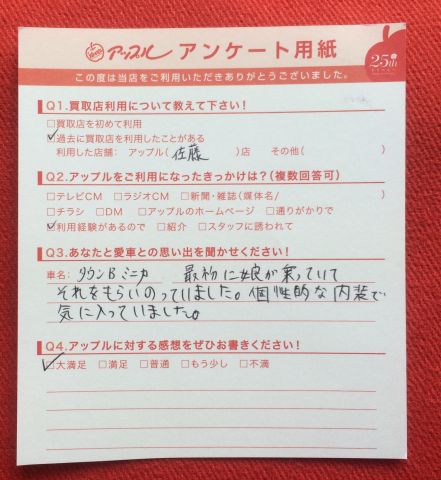 アップル アンケート用紙
25th
この度は当店をご利用いただきありがとうございました。
Q1.買取店利用について教えて下さい！
□買取店を初めて利用
□過去に買取店を利用したことがある
利用した店舗： アップル（ 佐藤 ）店 その他（ ）
Q2.アップルをご利用になったきっかけは？（複数回答可）
□テレビCM □ラジオCM □新聞・雑誌（媒体名/ ）
□チラシ □DM □アップルのホームページ □通りがかりで
□利用経験があるので □紹介 □スタッフに誘われて
Q3.あなたと愛車との思い出を聞かせください！
車名： タウンB ミニカ 最初に娘が乗っていて
それをもらいのっていました。個性的な内装で
気に入っていました。
Q4.アップルに対する感想をぜひお書きください！
□大満足 □満足 □普通 □もう少し □不満